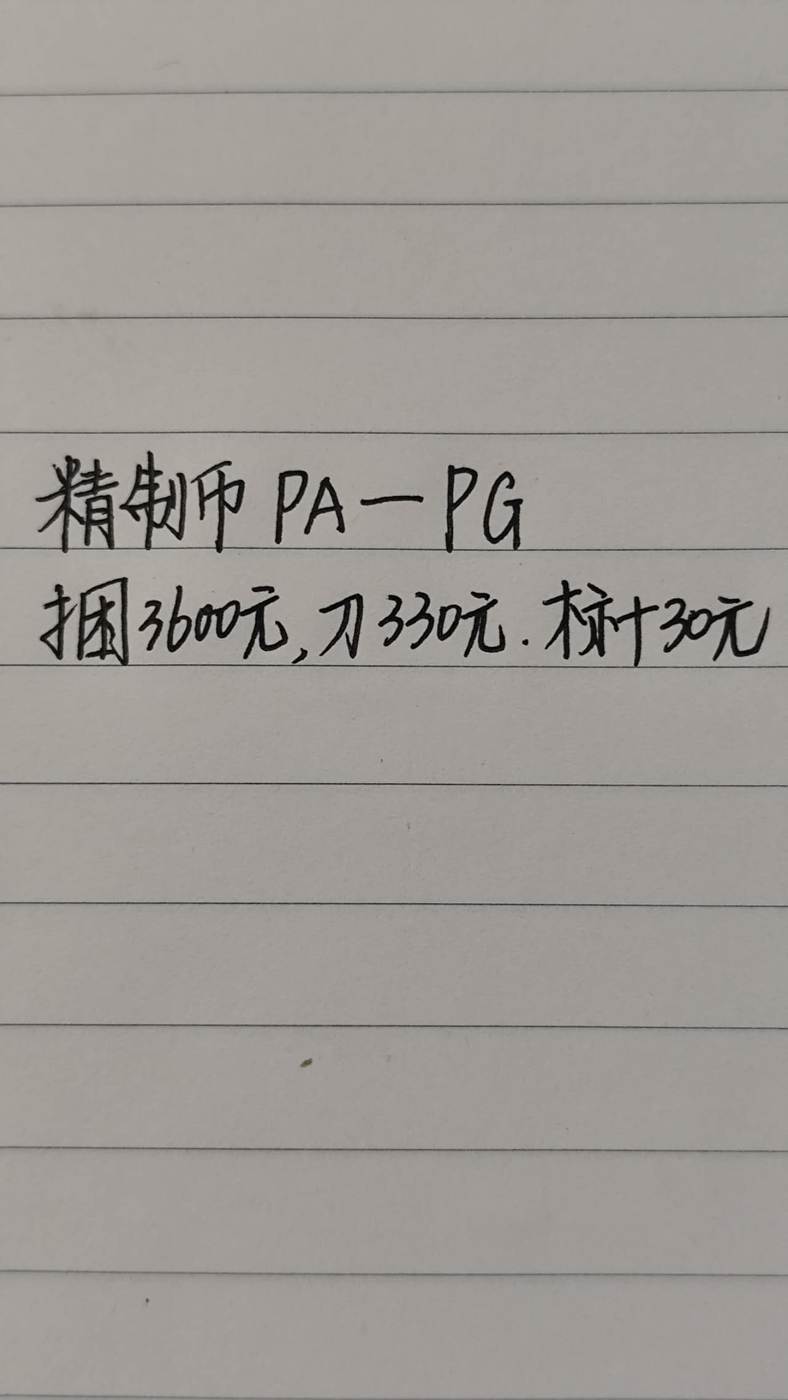 精制币 PA一PG
捆3600元,刀330元.标十30元